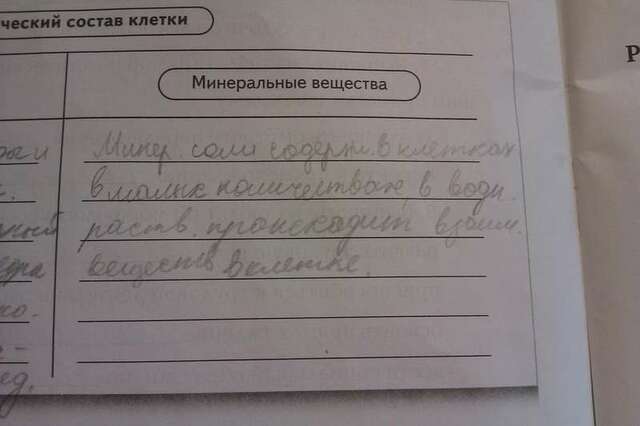 ческий состав клетки
Минеральные вещества
Р
Минер. соли содерж. в клетках
в малых количествах, в водн.
раств. происходит взаим.
веществ в клетке.